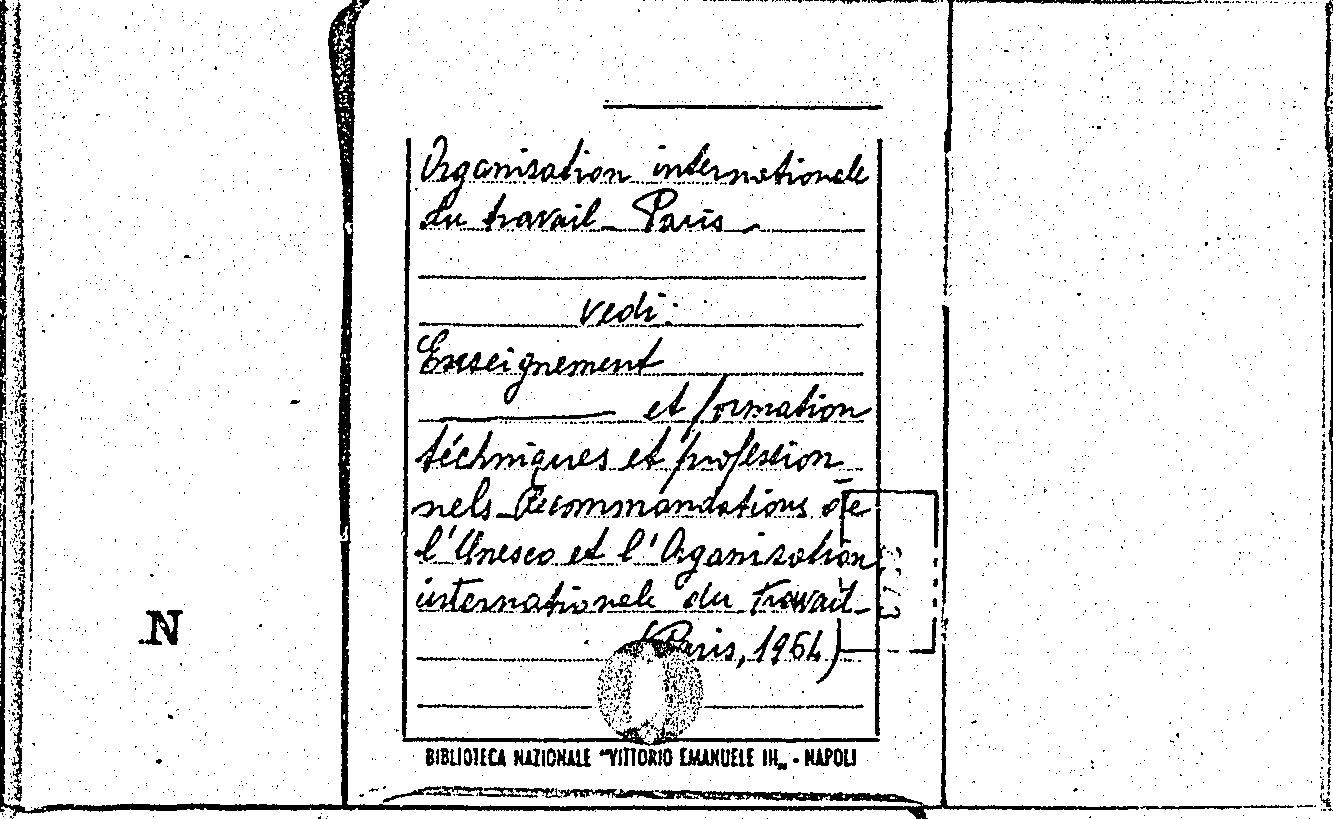 Organisation internationale
du travail - Paris -
vedi:
Enseignement
et formation
techniques et profession
nels - Recommandations de
l'Unesco et l'Organisation
internationale du travail -
(Paris, 1964)
N
BIBLIOTECA NAZIONALE "VITTORIO EMANUELE III" - NAPOLI